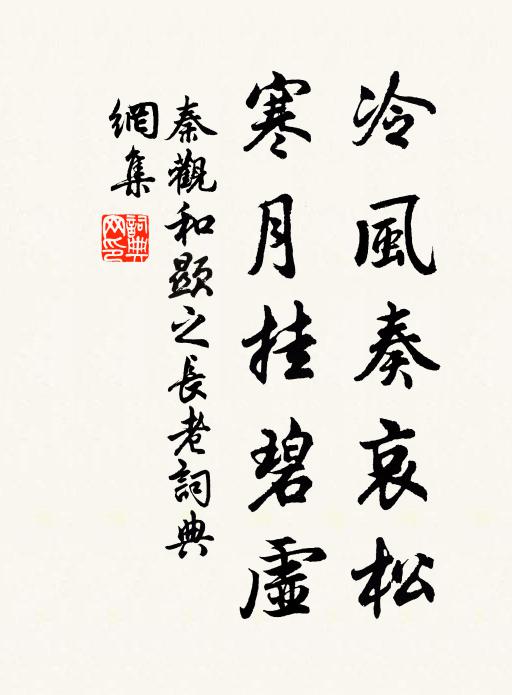 冷風奏哀松
寒月挂碧虛
秦觀和顯之長老詞典
網集
詞典網印